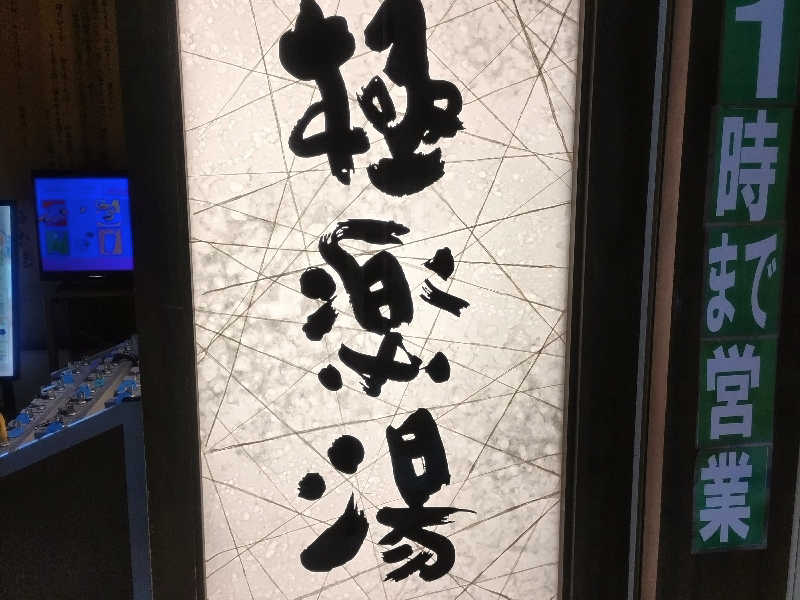 極楽湯
1時まで営業